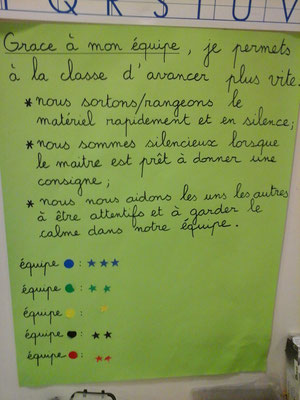 P Q R S T U V
Grace à mon équipe, je permets
à la classe d'avancer plus vite.
* nous sortons/rangeons le
matériel rapidement et en silence;
* nous sommes silencieux lorsque
le maitre est prêt à donner une
consigne;
* nous nous aidons les uns les autres
à être attentifs et à garder le
calme dans notre équipe.
équipe ● : ★★★
équipe ● : ★★
équipe ● : ★
équipe ● : ★★
équipe ● : ★★